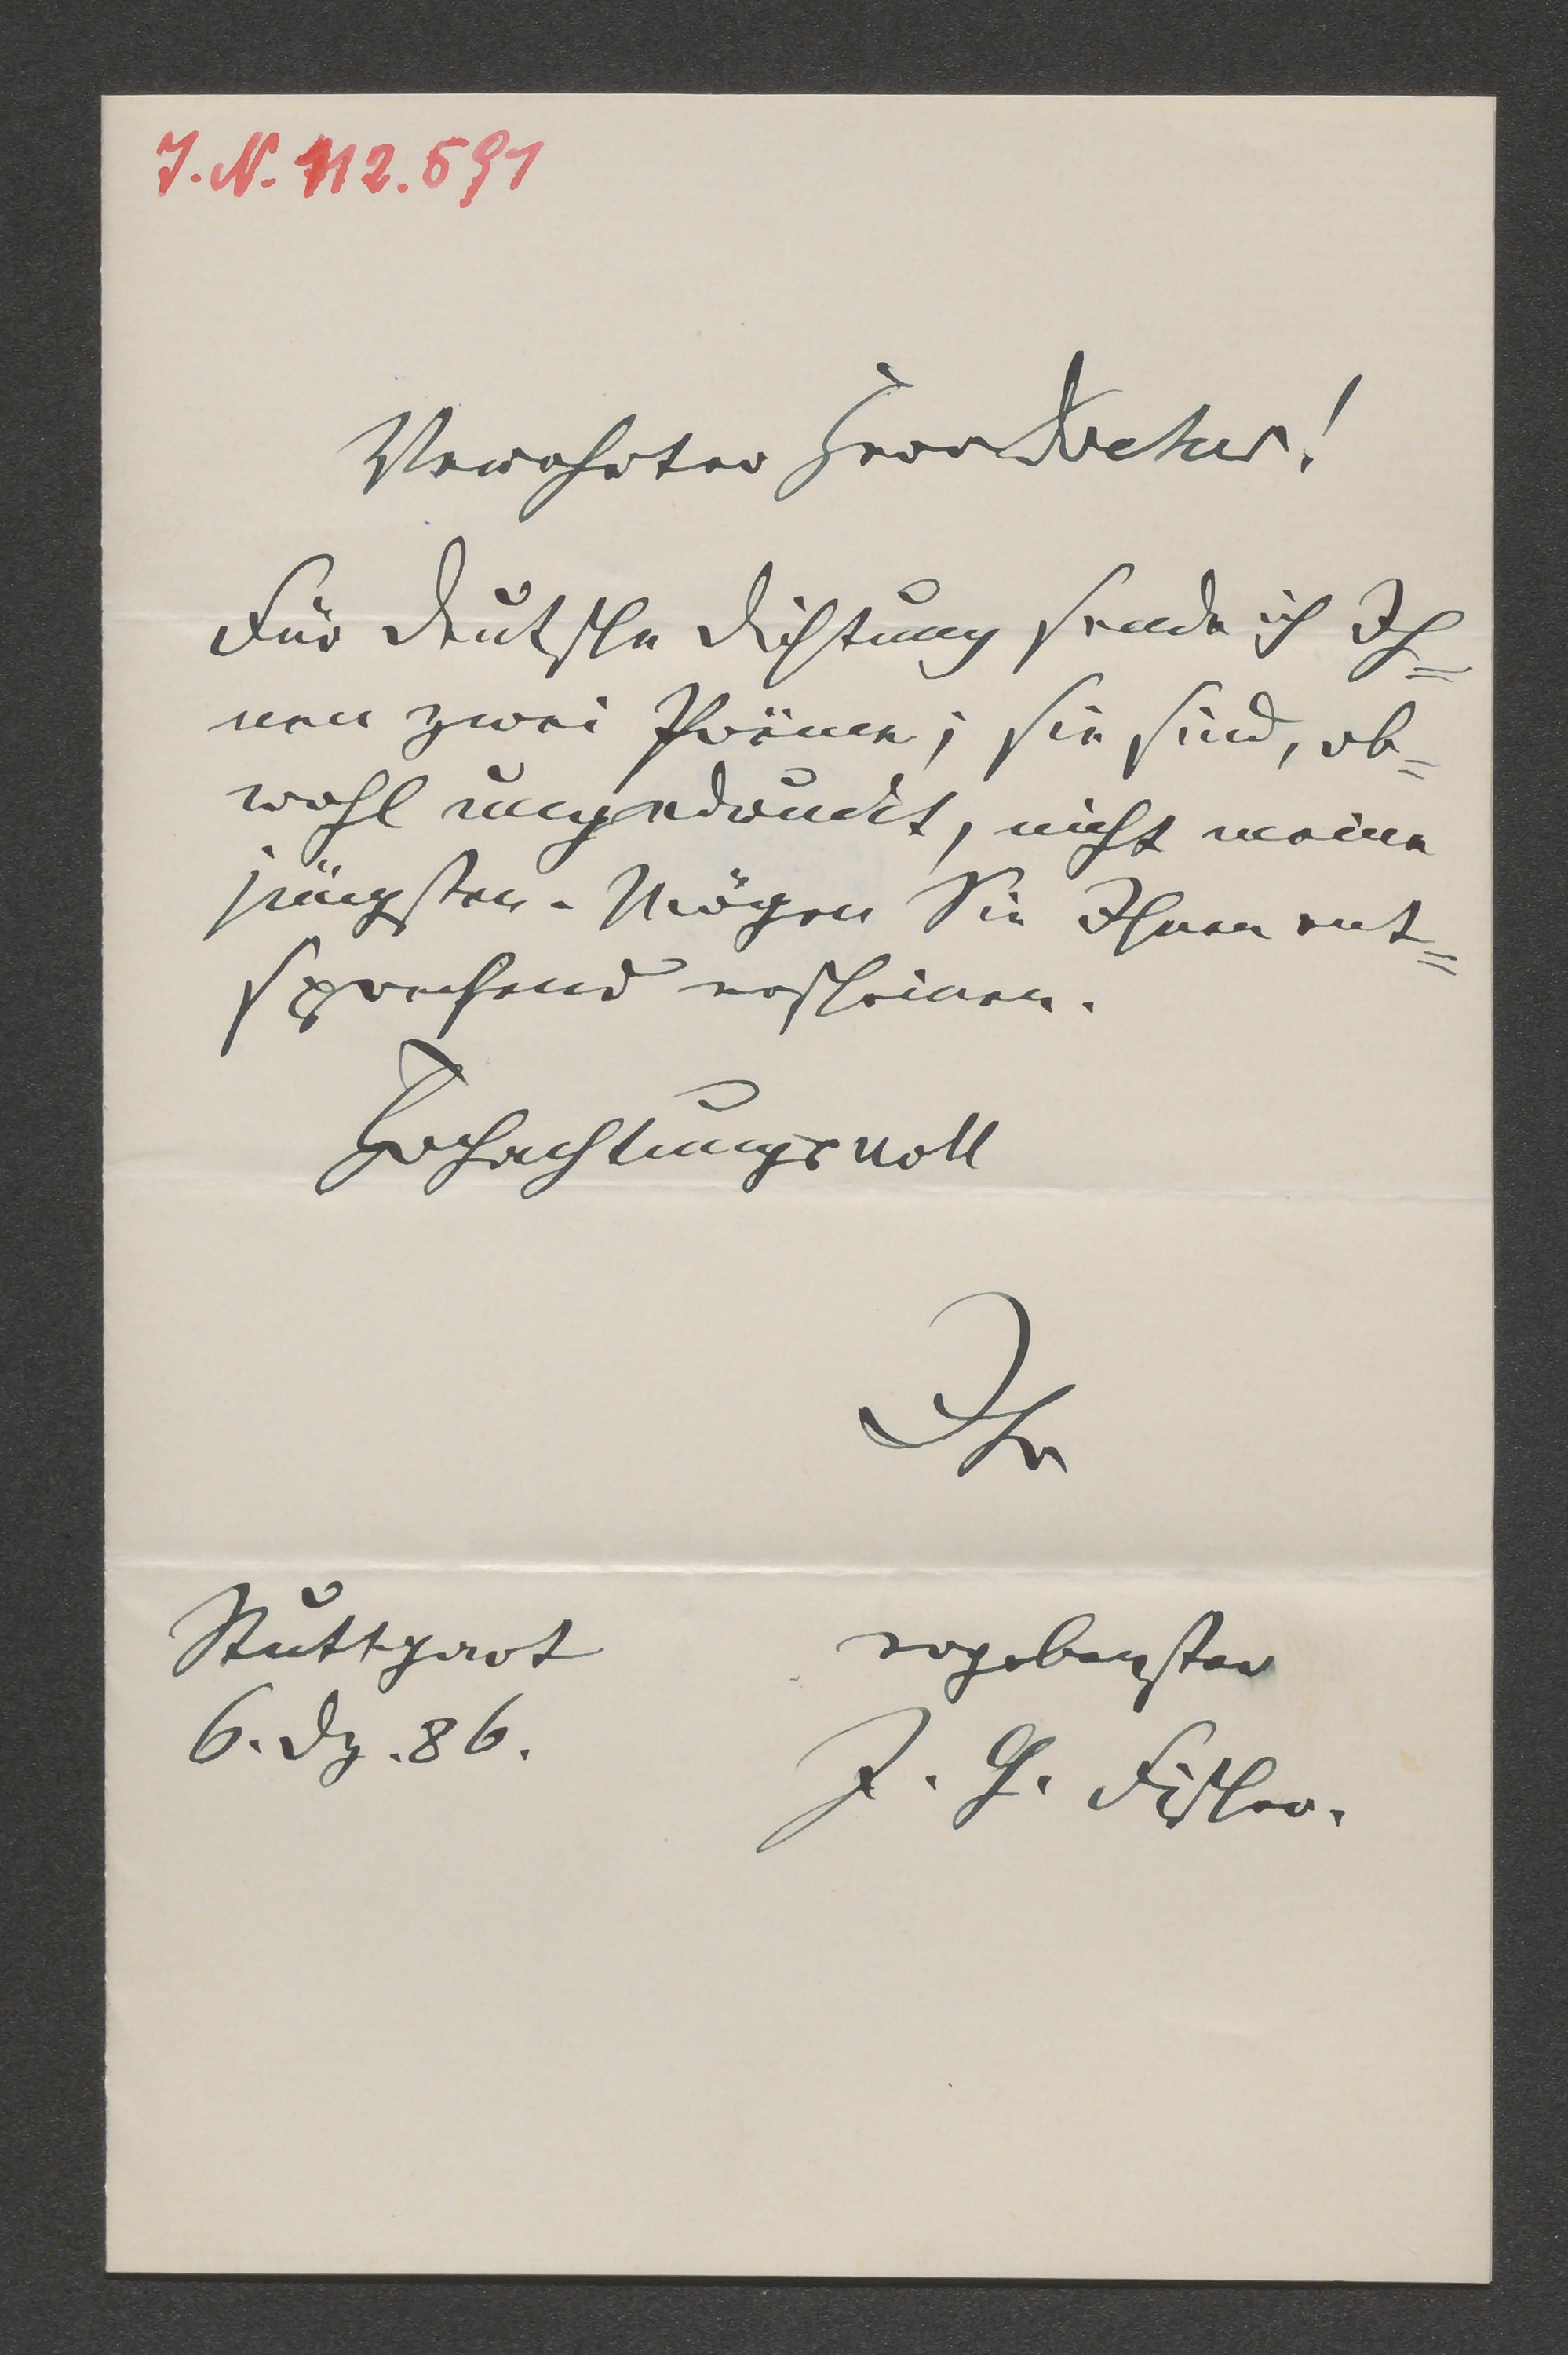 J. N. 112.591
Verehrter Herr Doctor!
Für deutsche Dichtung sende ich Ih=
nen zwei Poëme; sie sind, ob=
wohl ungedruckt, nicht meine
jüngsten. Mögen Sie Ihnen ent=
sprechend erscheinen.
Hochachtungsvoll
Ihr
Stuttgart ergebenster
6. Dz. 86. J. G. Fischer.